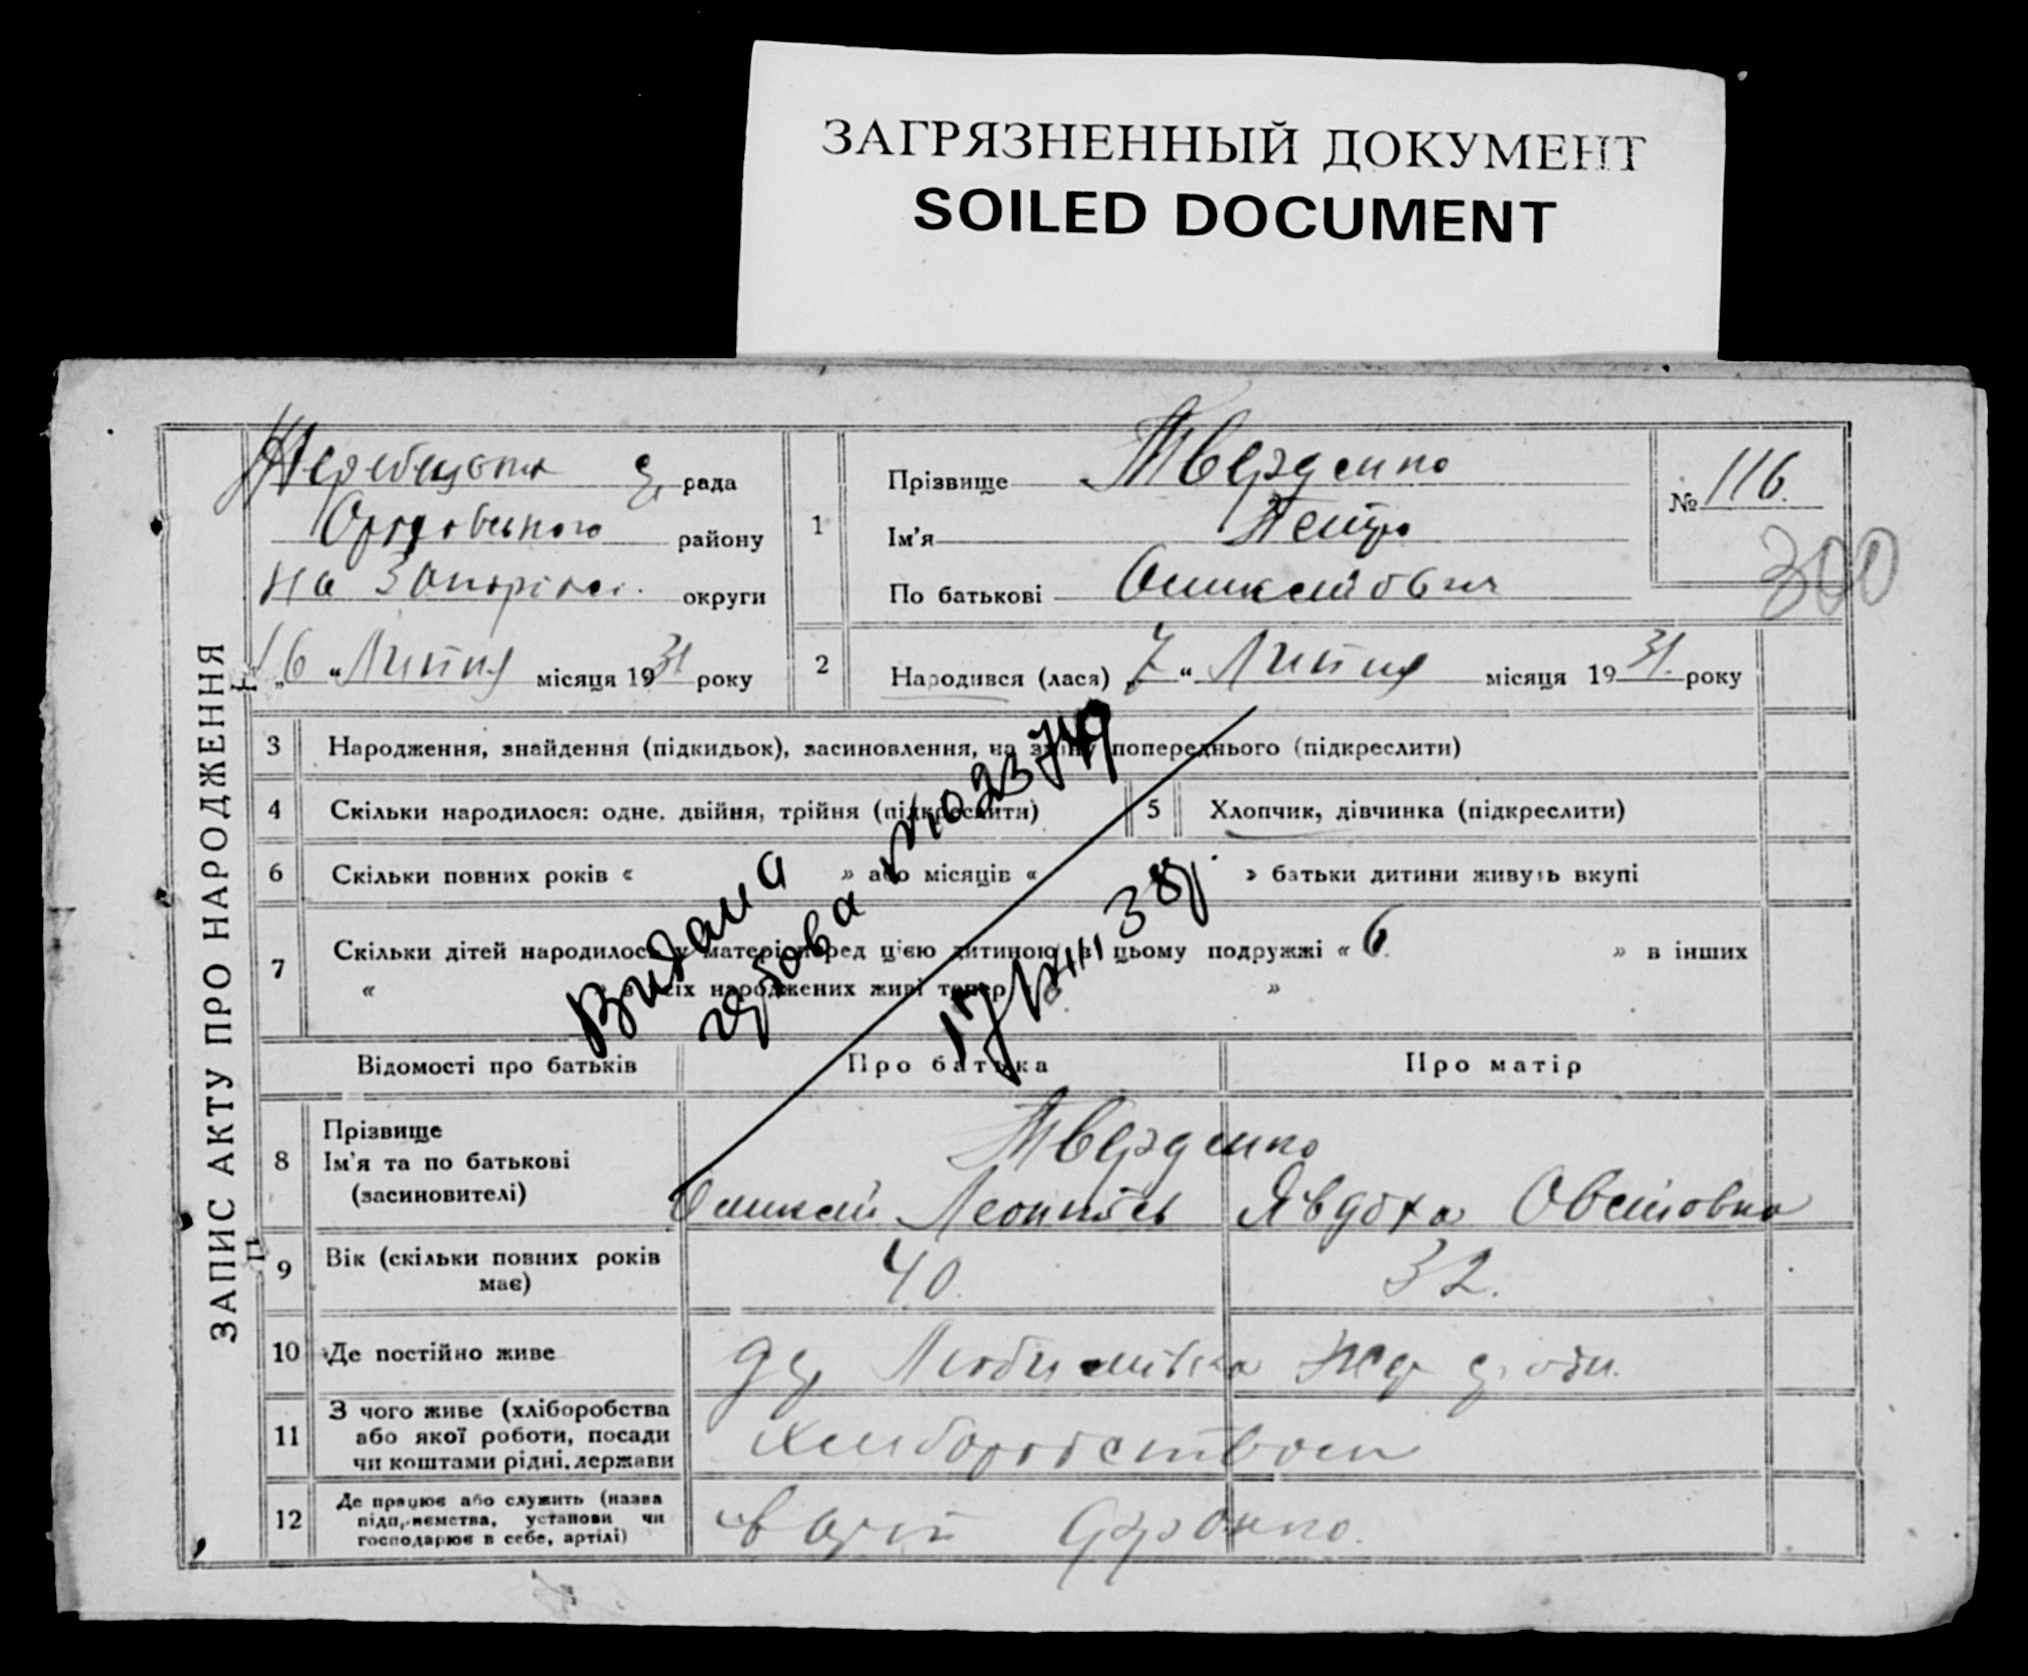 ЗАГРЯЗНЕННЫЙ ДОКУМЕНТ
SOILED DOCUMENT
ЗАПИС АКТУ ПРО НАРОДЖЕННЯ
Жеребецька с. рада
району
на Запоріжі округи
„16 “ Липня місяця 1931 року
1
Прізвище Тверденко
Ім'я Петро
По батькові
№ 116.
300
2 Народився (лася) „7 “ Липня місяця 1931. року
3 Народження, знайдення (підкидьок), засиновлення, на зміну попереднього (підкреслити)
4 Скільки народилося: одне, двійня, трійня (підкреслити)
5 Хлопчик, дівчинка (підкреслити)
6 Скільки повних років « » або місяців « » батьки дитини живуть вкупі
7 Скільки дітей народилось у матері перед цією дитиною в цьому подружжі « 6. » в інших
« » з усіх народжених живі тепер « »
Видана
17/VIII 38р.
Відомості про батьків Про батька Про матір
8 Прізвище
Ім'я та по батькові
(засиновителі)
Тверденко
Явдоха
9 Вік (скільки повних років
має)
40. 32.
10 Де постійно живе
Любимівка
11 З чого живе (хліборобства
або якої роботи, посади
чи коштами рідні, держави
хліборобством
12 Де працює або служить (назва
підприємства, установи чи
господарює в себе, артілі)
в арт